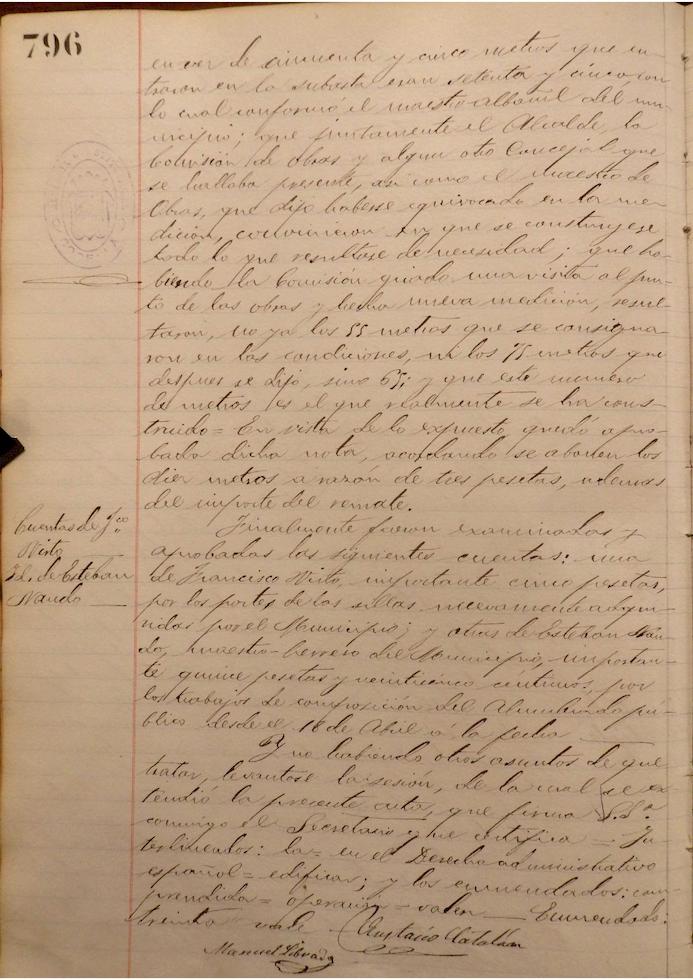 796
en vez de cincuenta y cinco metros que en-
traron en la subasta eran setenta y cinco, con
lo cual conformó el maestro albañil del mu-
nicipio; que juntamente el Alcalde, la
Comisión de Obras y algun otro Concejal que
se hallaba presente, así como el maestro de
Obras, que dijo haberse equivocado en la me-
dición, convinieron en que se construyese
todo lo que resultase de necesidad; que ha-
biendo la Comisión girado una visita al pun-
to de las obras y hecho nueva medición, resul-
taron, no ya los 55 metros que se consigna-
ron en las condiciones, ni los 75 metros que
despues se dijo, sino 65; y que este numero
de metros es el que realmente se ha cons-
truido = En vista de lo expuesto quedó apro-
bada dicha nota, acordando se abonen los
diez metros a razón de tres pesetas, ademas
del importe del remate.
Cuentas de Fco
Id. de Esteban
Finalmente fueron examinadas y
aprobadas las siguientes cuentas: una
de Francisco importante cinco pesetas,
por los portes de las sillas nuevamente adqui-
ridas por el Municipio; y otras de Esteban
maestro-herrero del Municipio, importan-
te quince pesetas y veinticinco centimos, por
los trabajos de composición del Alumbrado pu-
blico desde el 18 de Abril á la fecha
Y no habiendo otros asuntos de que
tratar, levantose la sesión, de la cual se ex-
tendió la presente acta, que firma S.Sª
conmigo el Secretario que certifica — In-
terlineados: la = en el Derecho administrativo
español = edificar; y los enmendados: com-
prendida = operación = valen — Enmendado:
treinta vale
Eustasio Catalán
Manuel Librada